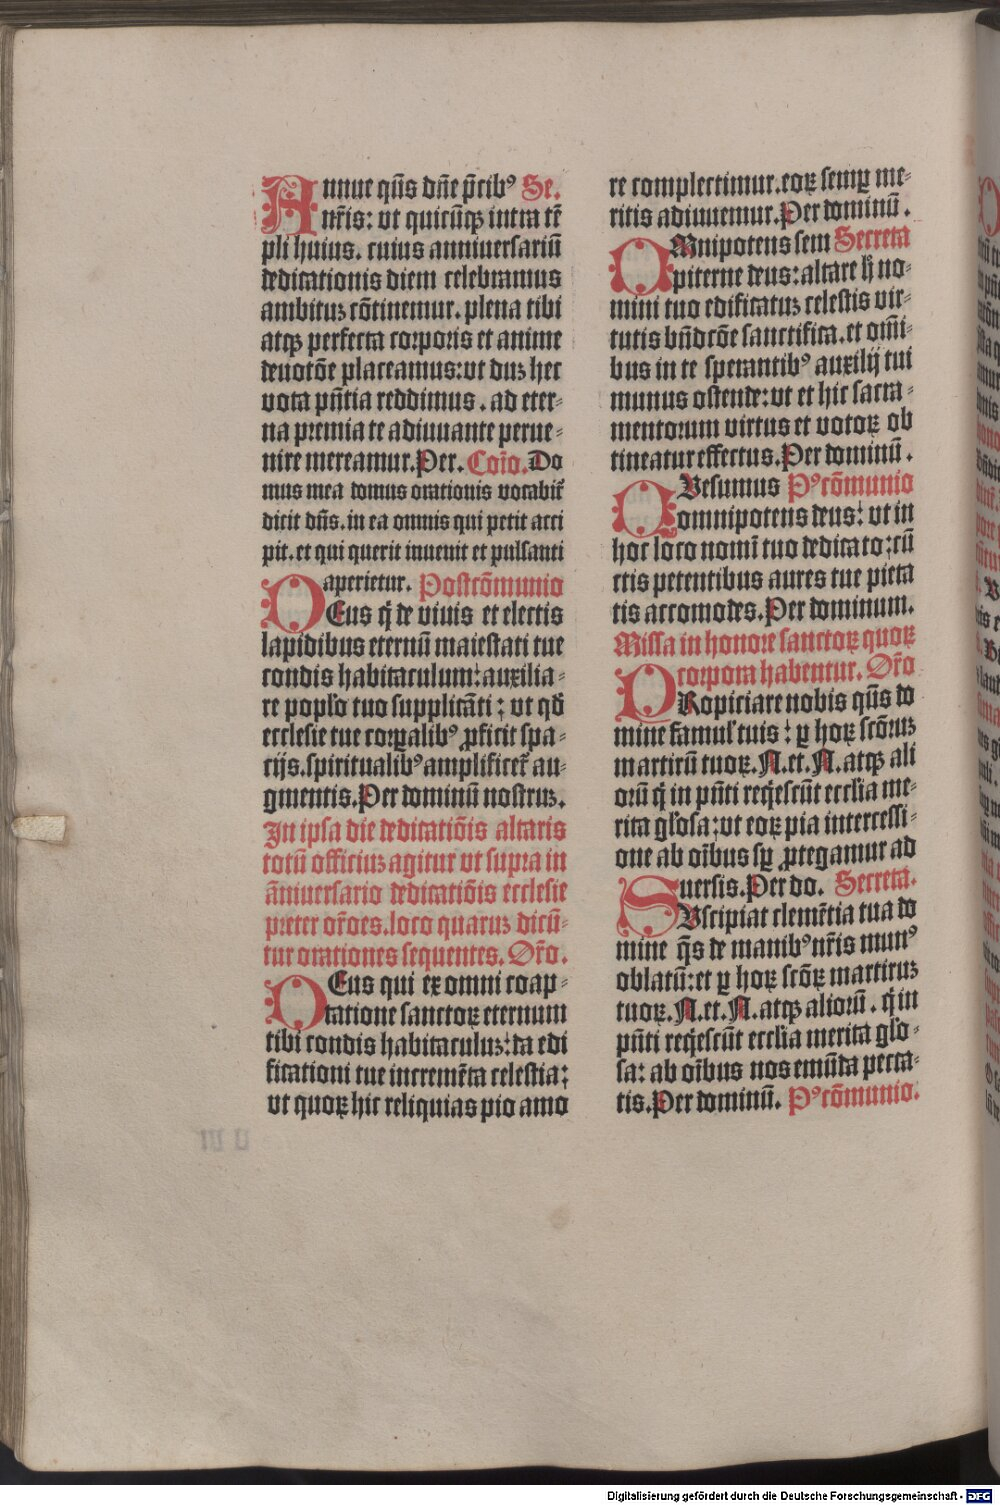 Annue qũs dñe p̃cibꝰ Se.
nr̃is: vt quicũqꝫ intra tẽ
pli huius. cuius anniuersariũ
dedicationis diem celebramus
ambituꝫ cõtinemur. plena tibi
atqꝫ perfecta corporis et anime
deuotõe placeamus: vt duꝫ hec
vota pñtia reddimus. ad eter-
na premia te adiuuante perue-
nire mereamur. Per. Cõio. Do
mus mea domus orationis vocabit̃
dicit dñs. in ea omnis qui petit acci
pit. et qui querit inuenit et pulsanti
aperietur. Postcõmunio
DEus q̃ de viuis et electis
lapidibus eternũ maiestati tue
condis habitaculum: auxilia-
re popl'o tuo supplicãti: vt qd̃
ecclesie tue corꝑalibꝰ ꝓficit spa-
cijs. spiritualibꝰ amplificet̃ au-
gmentis. Per dominũ nostruꝫ.
In ipsa die dedicatiõis altaris
totũ officiuꝫ agitur vt supra in
ãniuersario dedicatiõis ecclesie
preter or̃oes. loco quaruꝫ dicũ-
tur orationes sequentes. Or̃o.
DEus qui ex omni coap-
tatione sanctoꝝ eternum
tibi condis habitaculuꝫ: da edi
ficationi tue incremẽta celestia:
vt quoꝝ hic reliquias pio amo
re complectimur. eoꝝ semꝑ me-
ritis adiuuemur. Per dominũ.
OMnipotens sem Secreta
piterne deus: altare h̃ no-
mini tuo edificatuꝫ celestis vir-
tutis bñdcõe sanctifica. et om̃i-
bus in te sperantibꝰ auxilij tui
munus ostende: vt et hic sacra-
mentorum virtus et votoꝝ ob
tineatur effectus. Per dominũ.
QVesumus Pꝰcõmunio
omnipotens deus: vt in
hoc loco nomĩ tuo dedicato: cũ
ctis petentibus aures tue pieta
tis accomodes. Per dominum.
Missa in honore sanctoꝝ quoꝝ
corpora habentur. Or̃o
PRopiciare nobis qũs do
mine famul' tuis: ꝑ hoꝝ scõruꝫ
martirũ tuoꝝ. N. et. N. atqꝫ ali
orũ q̃ in pñti reqᷤescũt ecclia me-
rita gl'osa: vt eoꝝ pia intercessi-
one ab oĩbus sꝑ ꝓtegamur ad
uersis. Per do. Secreta.
SVscipiat clemẽtia tua do
mine q̃s de manibꝰ nr̃is munꝰ
oblatũ: et ꝑ hoꝝ scõꝝ martiruꝫ
tuoꝝ. N. et. N. atqꝫ aliorũ. q̃ in
pñti reqᷤescũt ecclia merita gl'o-
sa: ab oĩbus nos emũda pecca-
tis. Per dominũ. Pꝰcõmunio.
Digitalisierung gefördert durch die Deutsche Forschungsgemeinschaft - DFG